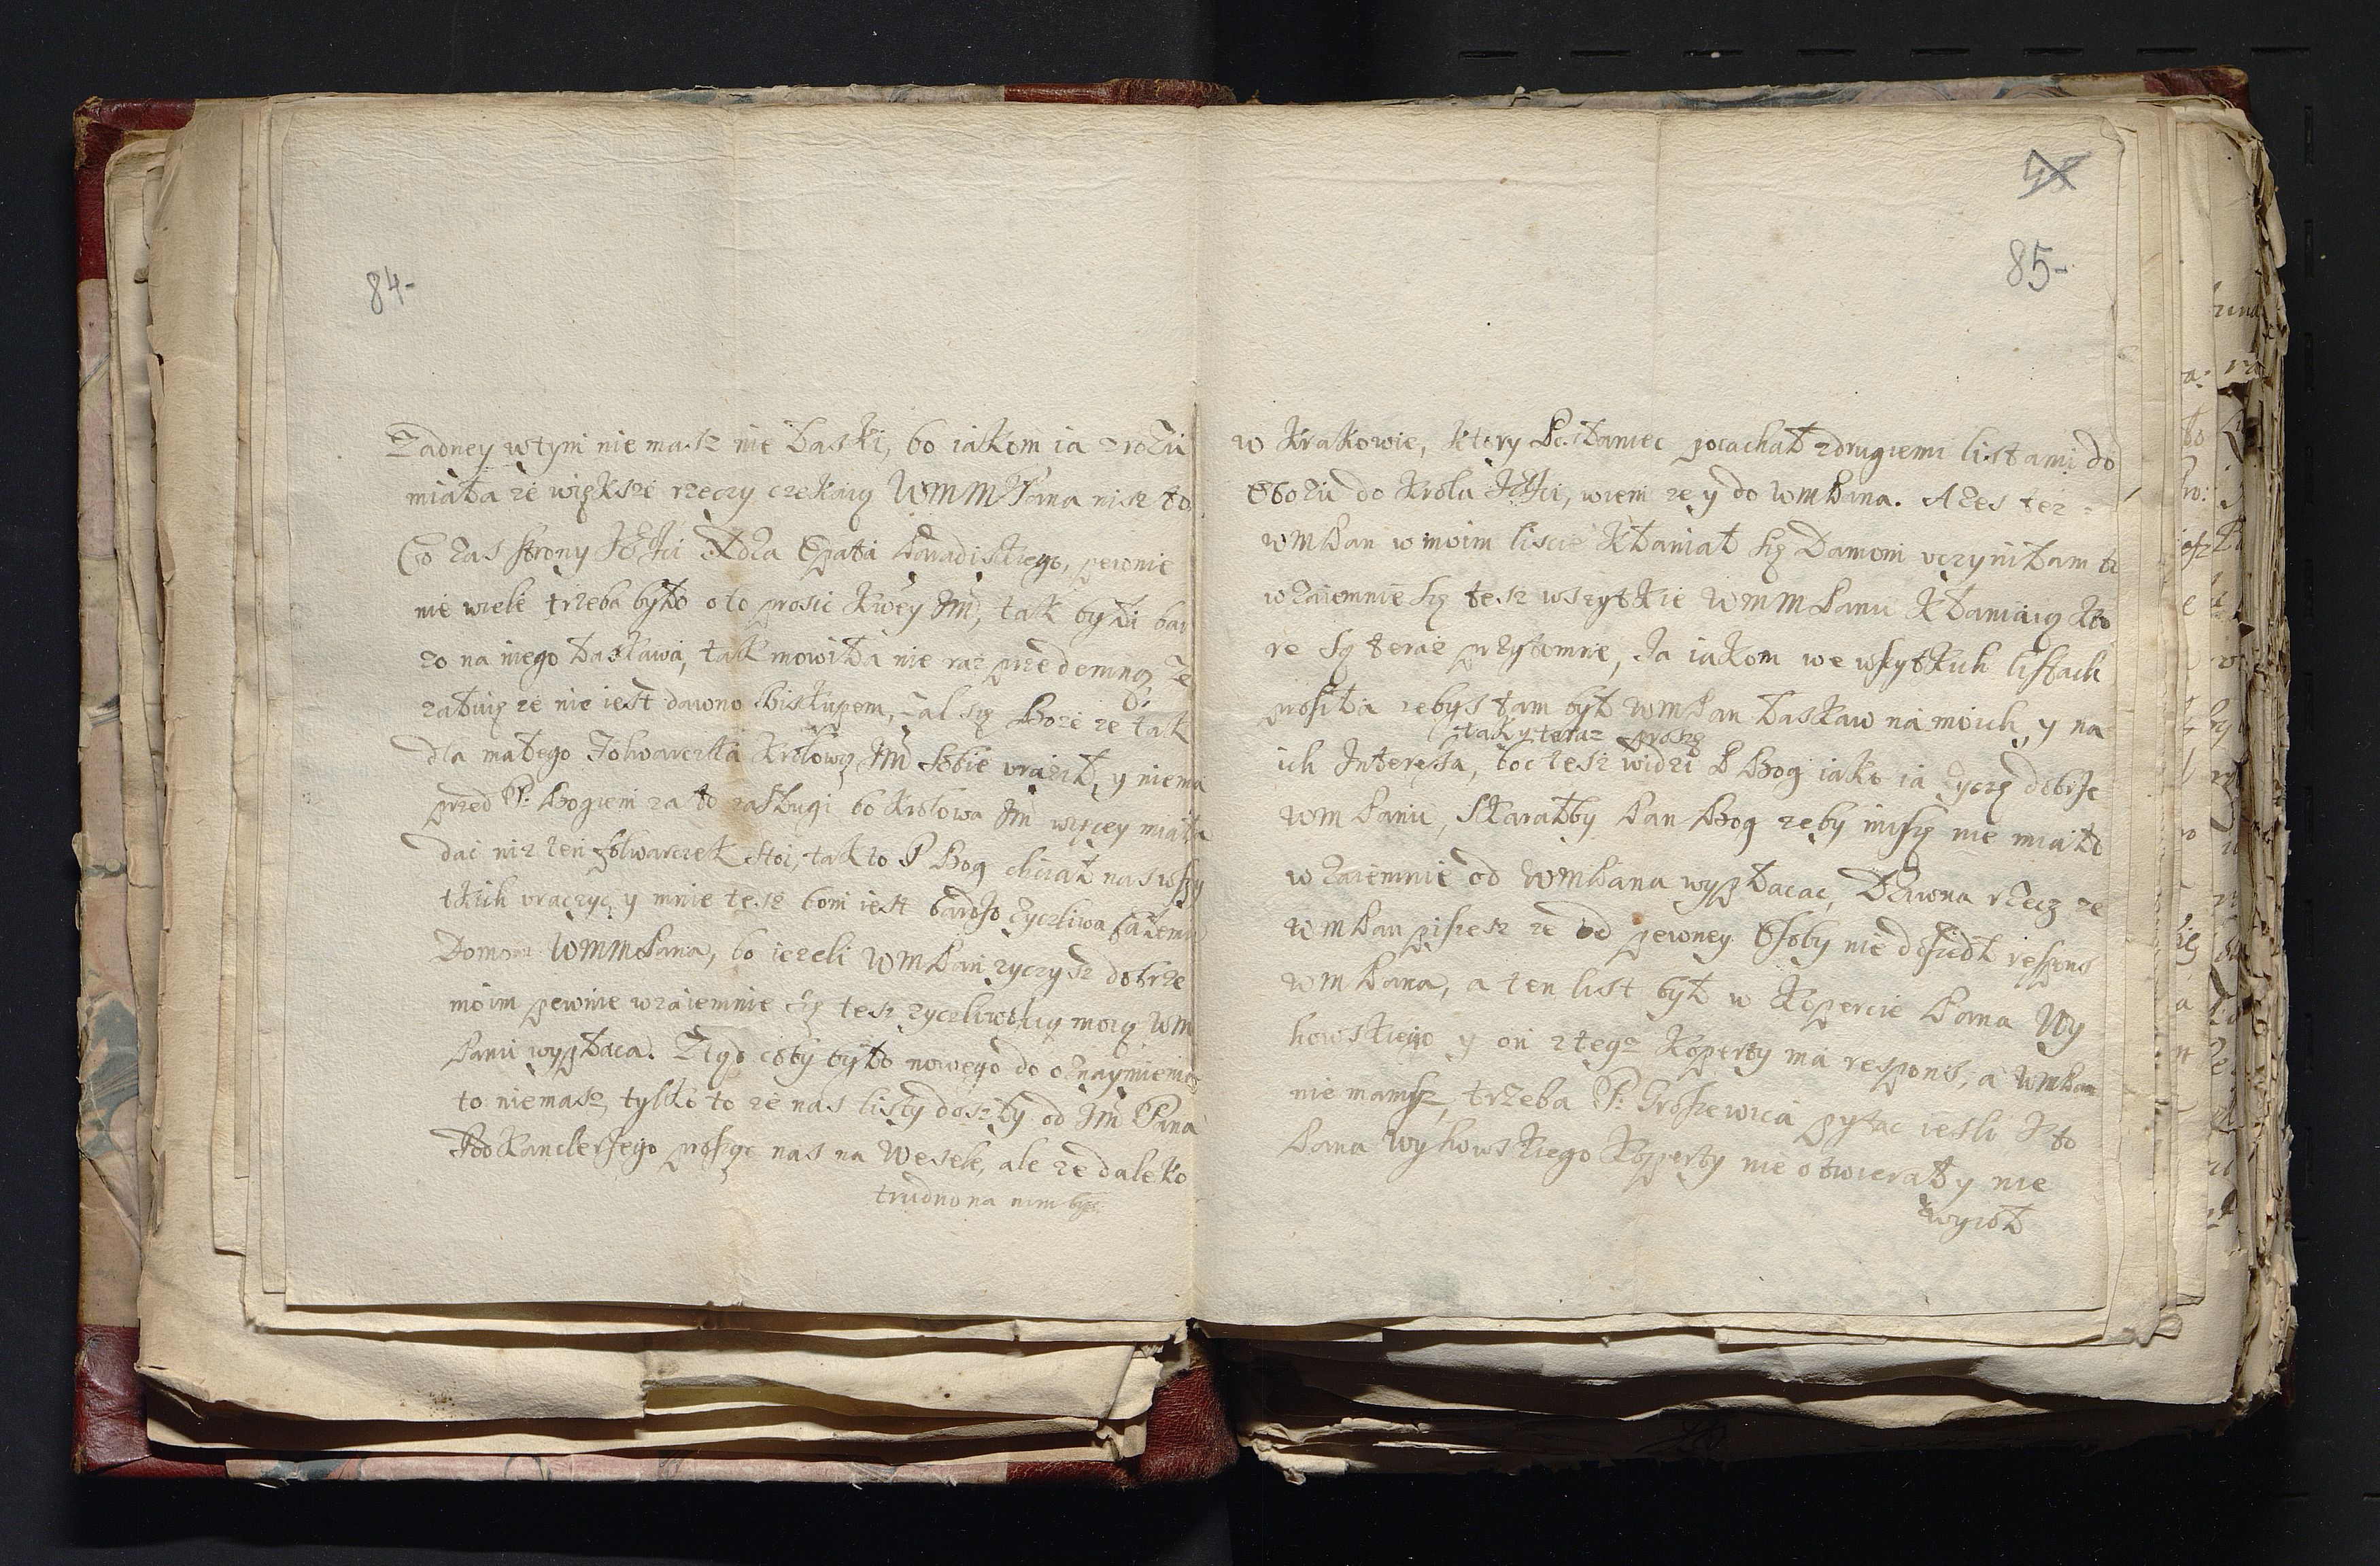 84-
Zadney wtym nie masz nie Łaski, bo iakom ia zrozu
miała ze większe rzeczy czekaią WMMPana nisz to
Co zas strony Opata Paradiskiego, pewnie
nie wiele trzeba było oto prosic Krwey Jm, tak była bar
zo na niego Łaskawa, tak mowiła nie raz przedemną, ze
załuię ze nie iest dawno Biskupem, zal się Boze ze tak
dla małego Folwarczka Krolowę Jm sobie uraził, y niema
przed P: Bogiem za to zasługi bo Krolowa Jm więcey miała
dac niz ten folwarczek stoi, tak to P Bog chciał nas wszy
tkich uraczyc, y mnie tesz bom iest bardzo zyczliwa
Domom WMMPana, bo iezeli WMPan zyczysz dobrze
moim pewnie wzaiemnie się tesz zyczliwoscią moią WM
Panu wypłaca. coby było nowego do oznaymienia
to niemasz, tylko to ze nas listy doszły od Jm Pana
Podkanclerzego prosząc nas na Wesele, ale ze daleko
trudno na nim byc
85-
w Krakowie, ktory Posłaniec poiachał zdrugiemi listami do
Obozu do Krola JKMci, wiem ze y do WMPana. A zes tez
WMPan w moim liscie Kłaniał się Damom uczyniłam to
wzaiemnie się tesz wszytkie WMMPanu Kłaniaią Kto
re są teraz przytomne, Ja iakom we wszytkich listach
prosiła zebys tam był WMPan Łaskaw na moich, y na
tak y teraz proszę
ich Interessa, boc tesz widzi P Bog iako ia zyczę dobrze
WMPanu, Skarałby Pan Bog zeby im się nie miało
wzaiemnie od WMPana wypłacac, Dziwna rzecz ze
WMPan piszesz ze od pewney Osoby nie doszedł respons
WMPana, a ten list był w Kopercie Pana Wy
howskiego y on z tego Koperty ma respons, a WMPan
nie masz, trzeba P: Groszewica pytac iesli Kto
Pana Wyhowskiego Koperty nie otwierał y nie
wyioł